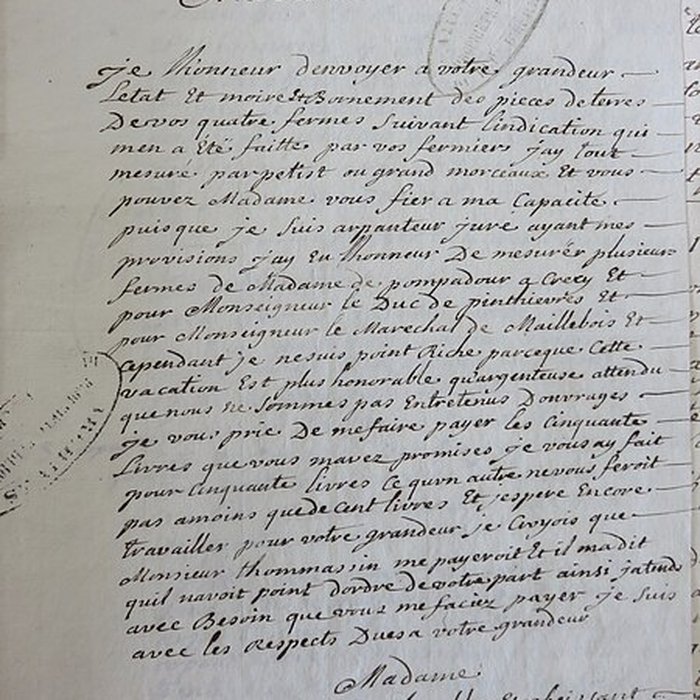 je lhonneur denvoyer a votre grandeur
Letat Et moire & Bornement des pieces de terres
De vos quatre fermes suivant lindication qui
men a Eté faitte par vos fermiers jay tout
mesuré par petist ou grand morceaux Et vous
pouvez Madame vous fier a ma Capacite
puis que je suis arpanteur juré ayant mes
provisions jay Eu lhonneur De mesurér plusieur
fermes de Madame de pompadour a Crecy Et
pour Monseigneur le Duc de pinthievres Et
pour Monseigneur le Marechal de Maillebois Et
cependant je ne suis point Riche parceque Cette
vacation Est plus honorable qu'argenteuse attendu
que nous ne sommes pas Entretenus Douvrages
je vous prie De me faire payer les Cinquante
Livres que vous mavez promises je vous ay fait
pour Cinquante livres Ce quvn autre ne vous feroit
pas amoins que de Cent livres Et j'espere Encore
travailler pour votre grandeur je Croyois que
Monsieur thommassin me payeroit Et il ma dit
quil navoit point dordre de votre part ainsi jatends
avec Besoin que vous me faciez payer je suis
avec les Respects Dues a votre grandeur
Madame